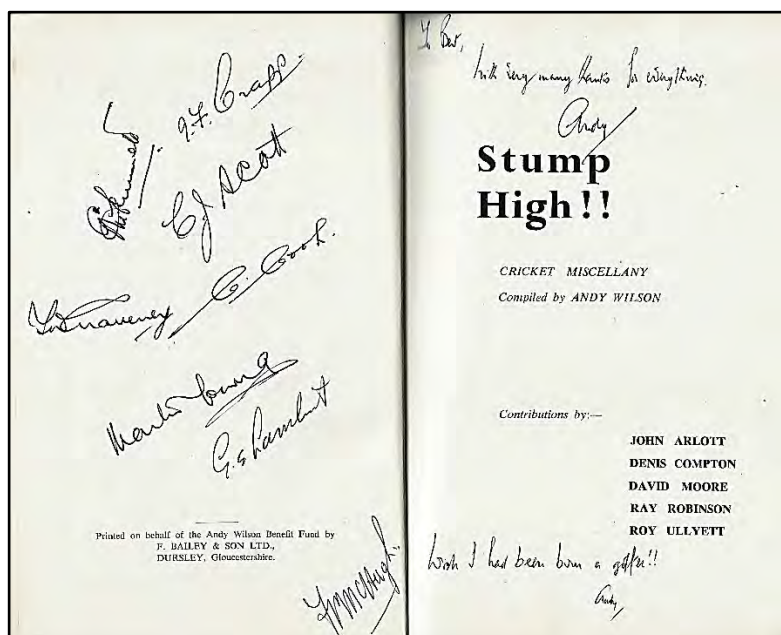 J.F. Crapp.
C J Scott
C. Cook.
Martin Young
G. E. Lambert
Printed on behalf of the Andy Wilson Benefit Fund by
F. BAILEY & SON LTD.,
DURSLEY, Gloucestershire.
F P McHugh.
To Bev,
With very many thanks for everything.
Andy
Stump
High!!
CRICKET MISCELLANY
Compiled by ANDY WILSON
Contributions by:—
JOHN ARLOTT
DENIS COMPTON
DAVID MOORE
RAY ROBINSON
ROY ULLYETT
Wish I had been born a golfer!!
Andy